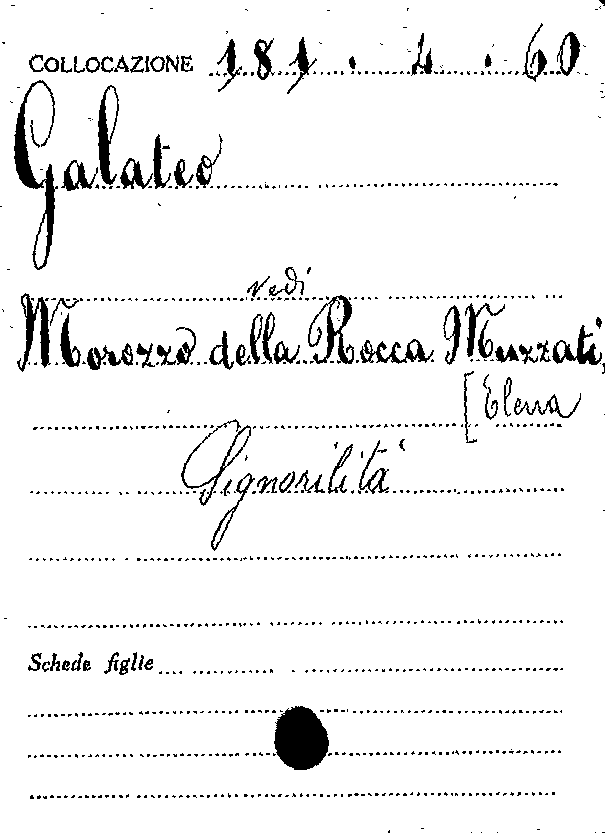 COLLOCAZIONE 181.4.60
Galateo
vedi
Morozzo della Rocca Muzzati,
[Elena
Signorilità
Schede figlie